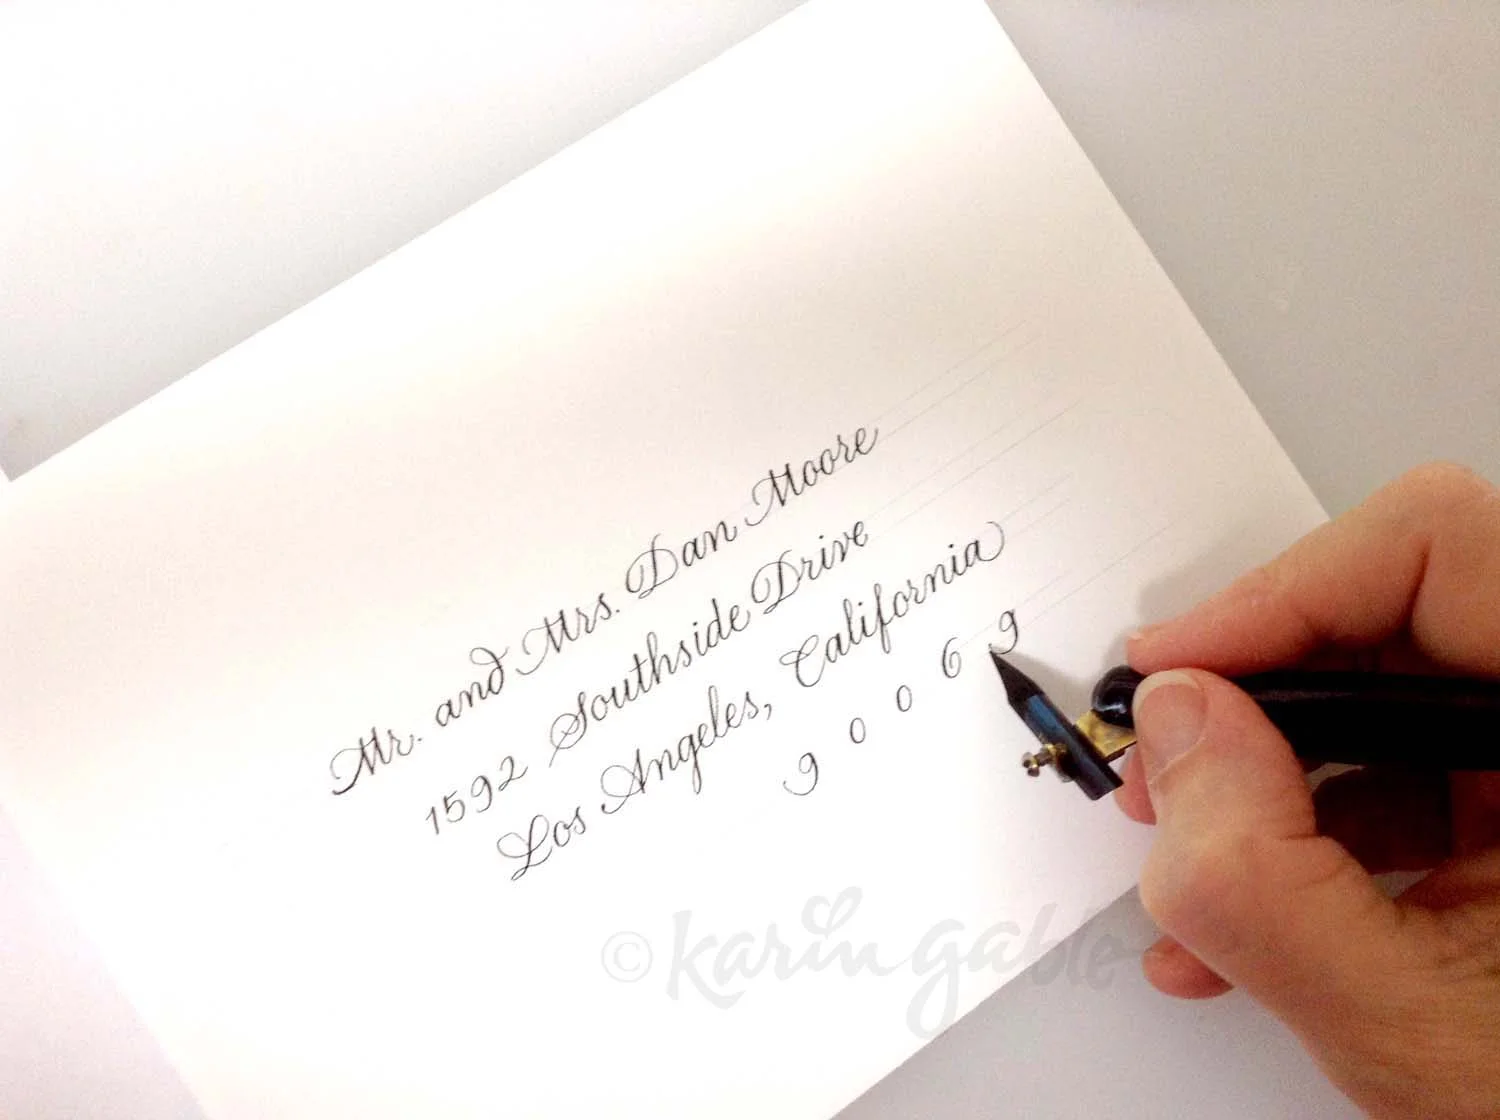 Mr. and Mrs. Dan Moore
1592 Southside Drive
Los Angeles, California
9 0 0 6 9
© karin gable